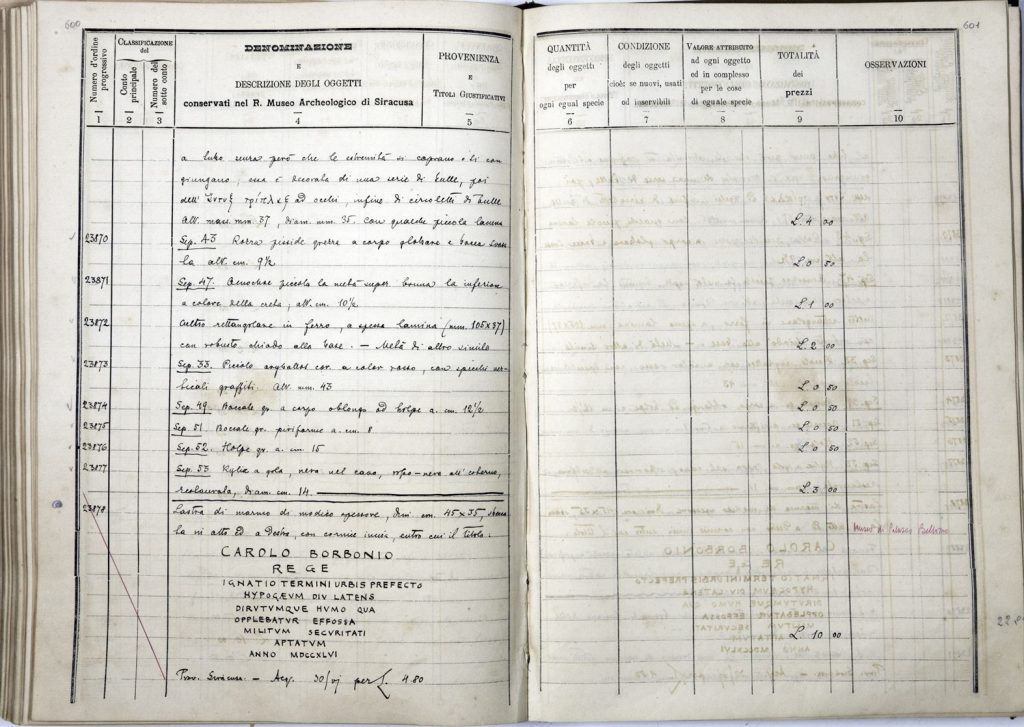 600
Numero d'ordine progressivo
CLASSIFICAZIONE del
Conto principale
Numero del sotto conto
DENOMINAZIONE
E
DESCRIZIONE DEGLI OGGETTI
conservati nel R. Museo Archeologico di Siracusa
PROVENIENZA
E
TITOLI GIUSTIFICATIVI
1 2 3 4 5
a tubo senza però che le estremità si coprano o si con
giungano, essa è decorata di una serie di bulle, poi
dell' ad occhi, infine di circoletti di bulle
Alt. mass. mm 37, diam. mm. 35. Con qualche piccola lacuna
23870 Sep. 43 Rozza pisside grezza a corpo globare e bocca
la alt. cm. 9 1/2
23871 Sep. 47. Oenochoe piccola la metà super. bruna la inferiore
a colore della creta, alt. cm. 10 1/2
23872 Cultro rettangolare in ferro, a spessa lamina (mm. 105 x 37)
con robusto chiodo alla base. — Metà di altro simile
23873 Sep. 33. Piccolo aryballos cor. a color rosso, con spicchi ver-
ticali graffiti. Alt. mm. 43
23874 Sep. 49. Boccale gr. a corpo oblongo ad holpe a. cm. 12 1/2
23875 Sep. 51. Boccale gr. piriforme a. cm. 8
23876 Sep. 52. Holpe gr. a. cm. 15
23877 Sep. 53 Kylix a gola, nera nel cavo, rosso-nera all' esterno,
restaurata, diam. cm. 14.
23878 Lastra di marmo di modico spessore, dim. cm. 45 x 35,
la in alto ed a destra, con cornice incisa, entro cui il titolo:
CAROLO BORBONIO
REGE
IGNATIO TERMINI URBIS PREFECTO
HYPOGÆUM DIV LATENS
DIRVTVMQVE HVMO QVA
OPPLEBATVR EFFOSSA
MILITVM SECVRITATI
APTATVM
ANNO MDCCXLVI
Prov. Siracusa. — Acq. 30/vj per £. 4.80
601
QUANTITÀ
degli oggetti
per
ogni egual specie
CONDIZIONE
degli oggetti
cioè: se nuovi, usati
od inservibili
VALORE ATTRIBUTO
ad ogni oggetto
ed in complesso
per le cose
di eguale specie
TOTALITÀ
dei
prezzi
OSSERVAZIONI
6 7 8 9 10
L. 4 00
L. 0 50
L. 1 00
L. 2 00
L. 0 50
L. 0 50
L. 0 50
L. 0 50
L. 3 00
Museo di Palazzo Bellomo
L. 10 00